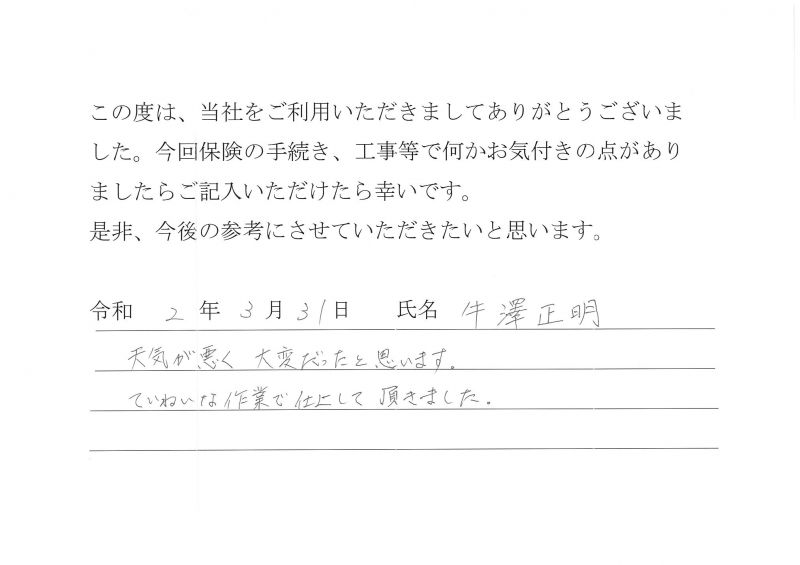 この度は、当社をご利用いただきましてありがとうございま
した。今回保険の手続き、工事等で何かお気付きの点があり
ましたらご記入いただけたら幸いです。
是非、今後の参考にさせていただきたいと思います。
令和 2 年 3 月 31 日 氏名 牛澤正明
天気が悪く 大変だったと思います。
ていねいな作業で仕上して頂きました。